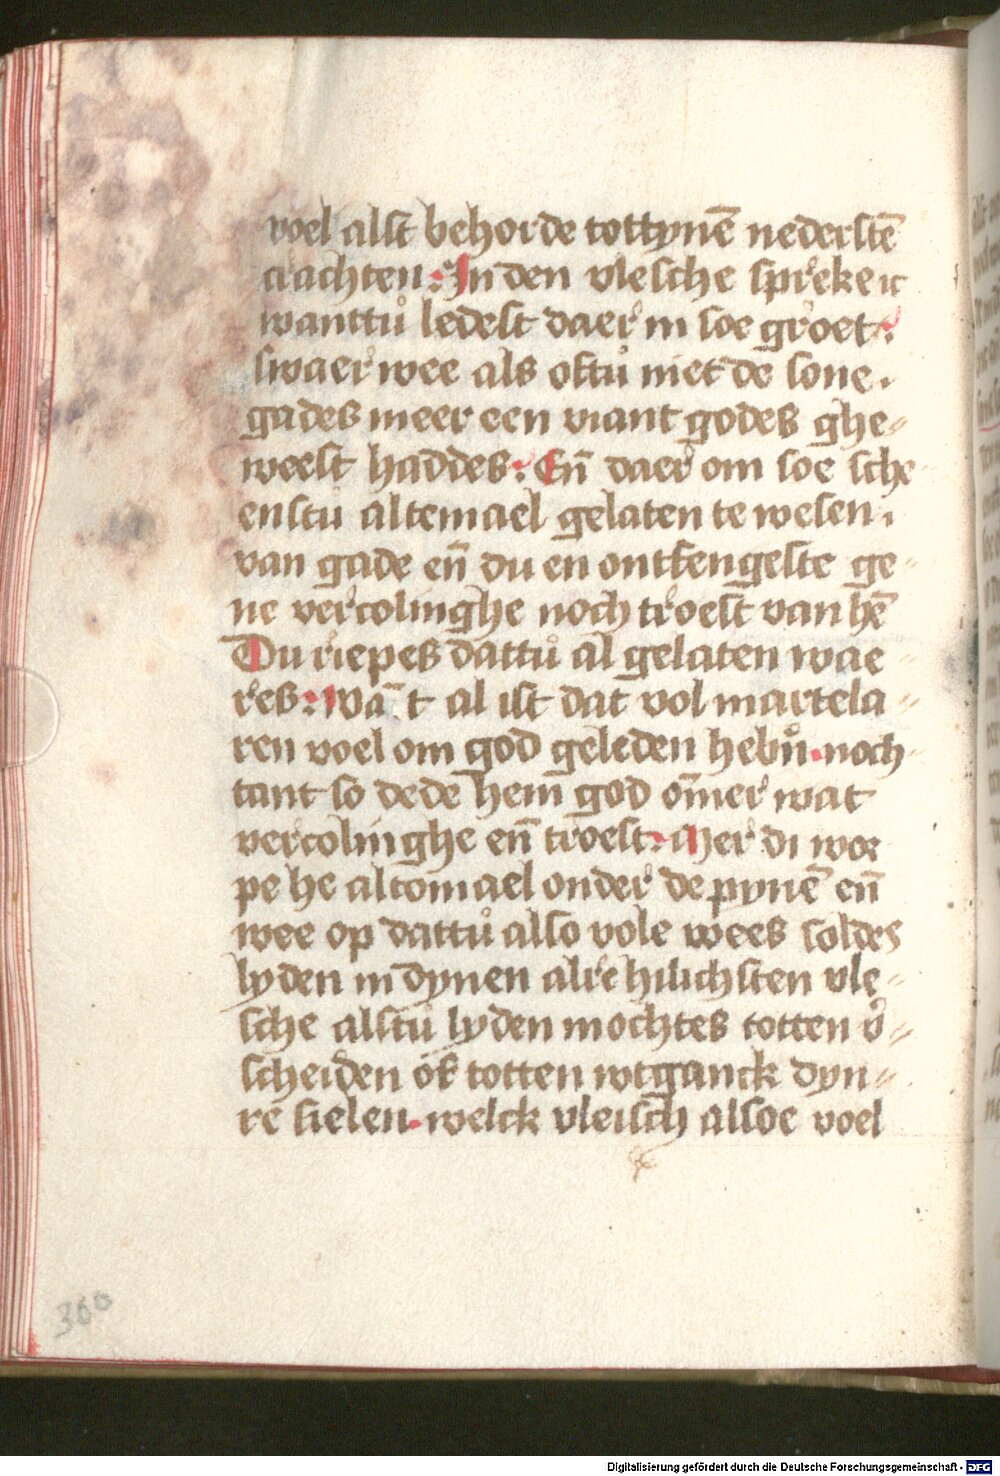 voel alst behorde tottynē nederstē
crachten: In den vlesche spreke ic
wanttů ledest daer in soe groet:
swaer wee als oftu niet de sone.
gades meer een viant godes ghe-
weest haddes: Eñ daer om soe sche
enstu altemael gelaten te wesen.
van gade eñ du en ontfengeste ge-
ne vercolinghe noch troest van hē
Du riepes dattů al gelaten wae-
res: Wā t al ist dat vol martela-
ren voel om god geleden hebn̊. noch-
tant so dede hem god om̄er wat
vercolinghe eñ troest: Mer di wor
pe he altomael onder de pynē eñ
wee op dattů also vole wees soldes
lyden in dynen alre hilichsten vle-
sche alstu lyden mochtes totten v̓-
scheiden ok totten wtganck dyn-
re sielen. welck vleisch alsoe voel
360
Digitalisierung gefördert durch die Deutsche Forschungsgemeinschaft - DFG